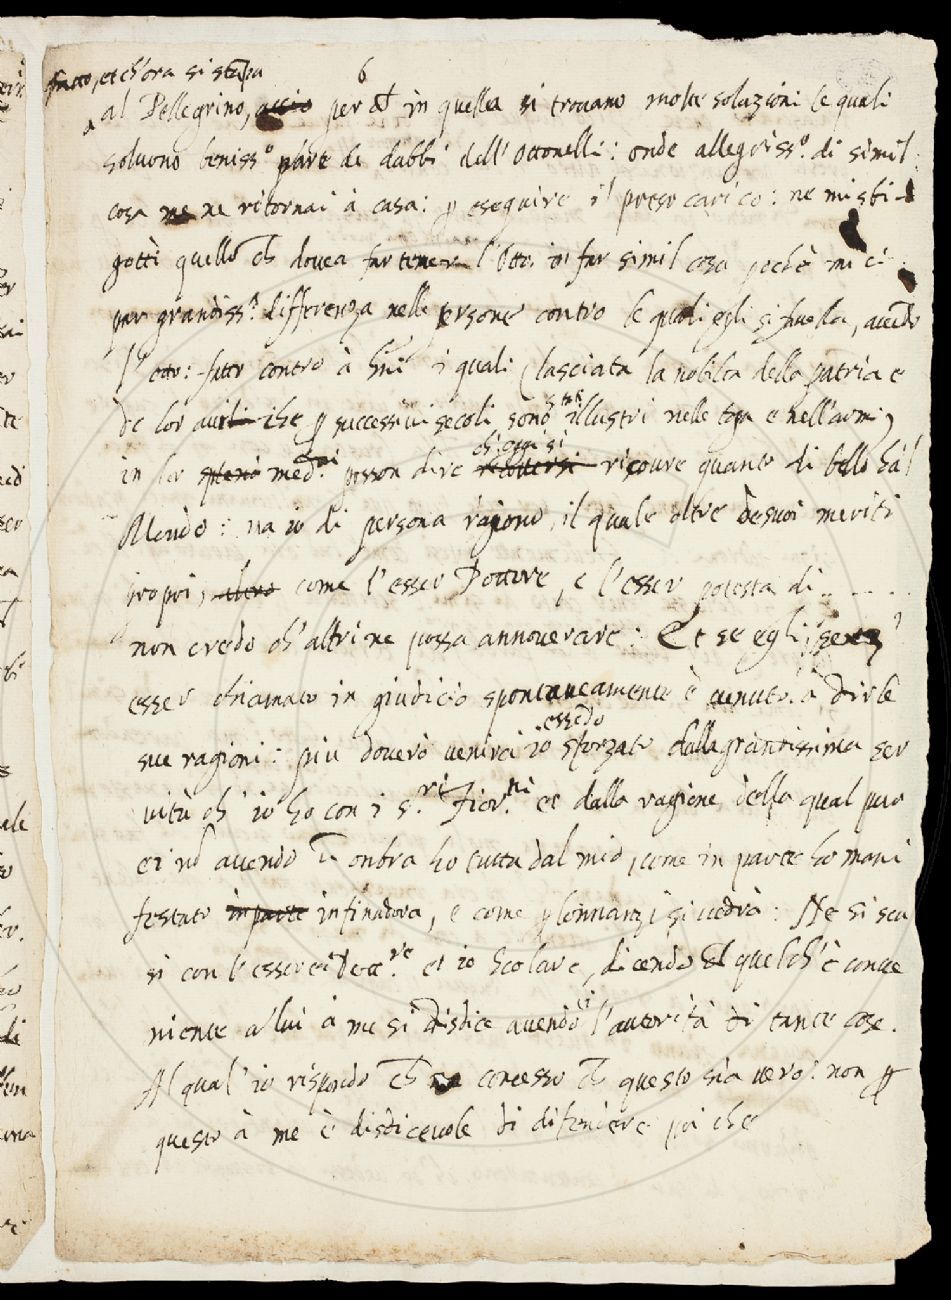 fatto, et ch'ora si stāpa
al Pellegrino, per in quella si trovano molte soluzioni le quali
solvono beniss.o parte de dubbi dell'Ottonelli: onde allegriss.o di simil
cosa me ne ritornai à casa: p eseguire il preso carico: ne mi sbi-
gottì quello ch dovea far temer l'Otto: in far simil cosa pochè mi è
par grandiss.a differenza nelle persone contro le quali egli si favella, avēdo
l'Otto: fatto contro à i quali (lasciata la nobiltà della patria e
de lor avi che p successivi secoli sono stati illustri nelle toga e nell'armi)
in lor med.mi posson dire ch'oggi si ricovre quanto di bello hà 'l
Mondo: ma io di persona ragiono, il quale oltre de suoi meriti
propri, come l'esser Dottore, e l'esser potesta di .. - - - .
non credo ch'altri ne possa annoverare: Et se egli senz'
esser chiamato in giudicio spontaneamente è venuto à dir le
sue ragioni: più doverò venirci io essēdo sforzato dalla grātissima ser
vitù ch'io ho con i S.ri Fior.ni et dalla ragione, della qual pur
ei nō avendo ombra ho tutta dal mio, come in parte ho mani
festato in parte infinadora, e come p l'innanzi si vedrà: Ne si scu
si con l'esser ei Dott.re et io Scolare, dicendo quel ch'è conve
niente a lui à me si disdice avendo ei l'autorità di tante cose.
Al qual' io rispōdo ch concesso ch questo sia vero: non p
questo à me è disdicevole di difendere poi che